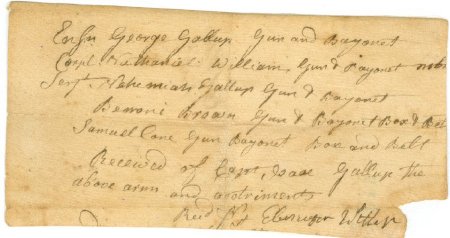 Ensn George Gallup Gun and Bayonet
Corpl Nathaniel William Gun & Bayonet
Serjt Nehemiah Gallup Gun & Bayonet
Benoni Brown Gun & Bayonet Box & Belt
Samuel Cone Gun Bayonet Box and Belt
Received of Capt Isaac Gallup the
above arms and
Ebenezer